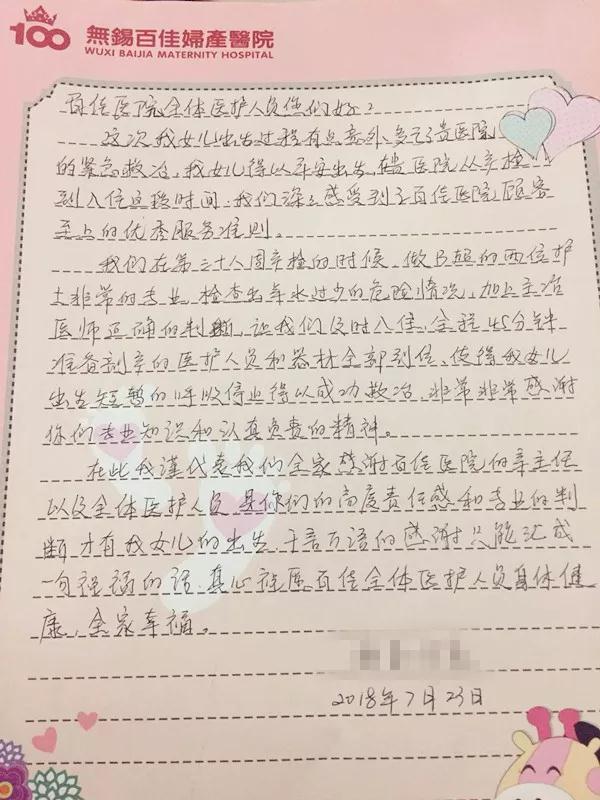 100
無錫百佳婦產醫院
WUXI BAIJIA MATERNITY HOSPITAL
百佳医院全体医护人员你们好：
这次我女儿出生过程有点意外，多亏了贵医院
的紧急救治，我女儿得以平安出生，在贵医院从产检
到入住这段时间，我们深深感受到了百佳医院顾客
至上的优秀服务准则。
我们在第三十八周产检的时候，做B超的两位护
士非常的专业，检查出羊水过少的危险情况，加上主治
医师正确的判断，让我们及时入住，全程45分钟
准备剖产的医护人员和器材全部到位，使得我女儿
出生短暂的呼吸停止得以成功救治，非常非常感谢
你们专业知识和认真负责的精神。
在此我谨代表我们全家感谢百佳医院的主任
以及全体医护人员，是你们的高度责任感和专业的判
断才有我女儿的出生，千言万语的感谢只能汇成
一句祝福的话，真心祝愿百佳全体医护人员身体健
康，全家幸福。
2018年7月23日